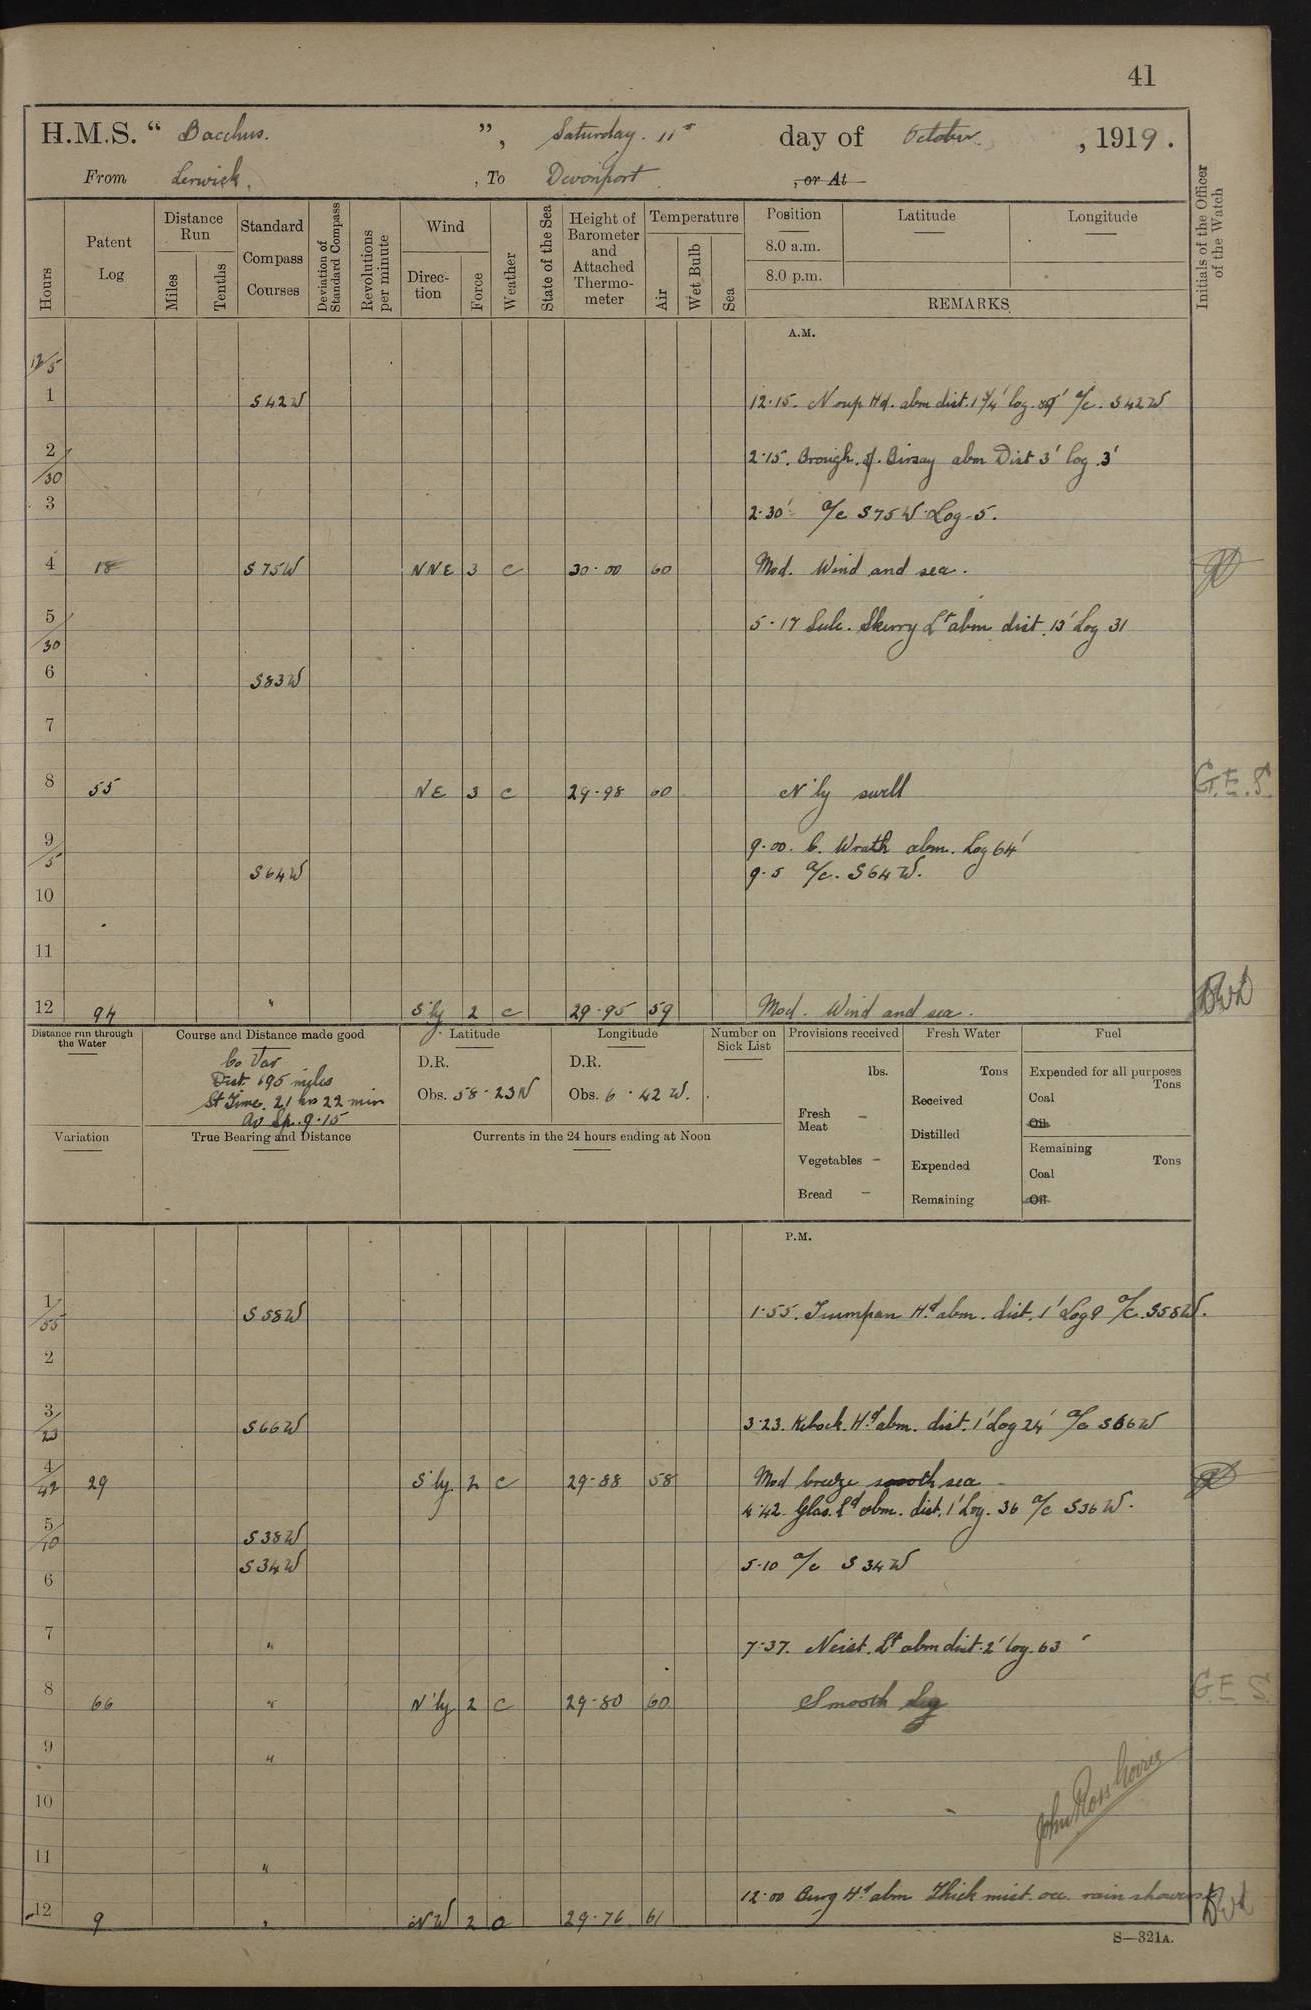 41
H.M.S. “ Bacchus. ”, Saturday. 11th day of October , 1919.
From Lerwick, , To Devonport , or At
Hours
Patent Log
Distance Run
Miles
Tenths
Standard Compass Courses
Deviation of Standard Compass
Revolutions per minute
Wind
Direction
Force
Weather
State of the Sea
Height of Barometer and Attached Thermometer
Temperature
Air
Wet Bulb
Sea
Position
8.0 a.m.
8.0 p.m.
Latitude
Longitude
REMARKS
Initials of the Officer of the Watch
A.M.
12/5
1 S42W 12·15. Noup Hd. abm dist. 1 3/4' log. a/c. S42W
2/30 2·15. Brough. of. Birsay abm Dist 3' log .3'
3 2·30' a/c S75W Log-5.
4 18 S75W NNE 3 c 30·00 60 Mod. Wind and sea.
5/30 5·17 Sule. Skerry Lt abm dist. 13' Log 31
6 S83W
7
8 55 NE 3 c 29·98 60 N'ly swell G.E.S.
9/5 9·00. C. Wrath abm. Log 64'
S64W 9·5 a/c. S64W.
10
11
12 94 " S'ly 2 c 29·95 59 Mod. Wind and sea.
Distance run through the Water
Course and Distance made good
Co Var
Dist. 195 miles
St Time. 21 hrs 22 min
Av Sp. 9·15
Latitude
D.R.
Obs. 58·23N
Longitude
D.R.
Obs. 6·42 W.
Number on Sick List
Provisions received
lbs.
Fresh Meat –
Vegetables –
Bread –
Fresh Water
Tons
Received
Distilled
Expended
Remaining
Fuel
Expended for all purposes
Tons
Coal
Oil
Remaining
Tons
Coal
Oil
Variation
True Bearing and Distance
Currents in the 24 hours ending at Noon
P.M.
1/55 S58W 1·55. Tiumpan Hd. abm. dist. 1' Log 9 a/c. S58W.
2
3/23 S66W 3·23. Kebock. Hd. abm. dist. 1' Log 24' a/c S66W
4/42 29 S'ly. 2 c 29·88 58 Mod breeze smooth sea
4·42. Glas. Ld abm. dist. 1' Log. 36 a/c S36W.
5/10 S38W
S34W 5·10 a/c S34W
6
7 " 7·37. Neist. Lt abm dist. 2' log. 63
8 66 " N'ly 2 c 29·80 60 Smooth G.E.S.
9 "
10
11 "
12·00 Burg Hd. abm Thick mist. occ. rain showers
12 9 " NW 2 o 29·76 61
S—321A.